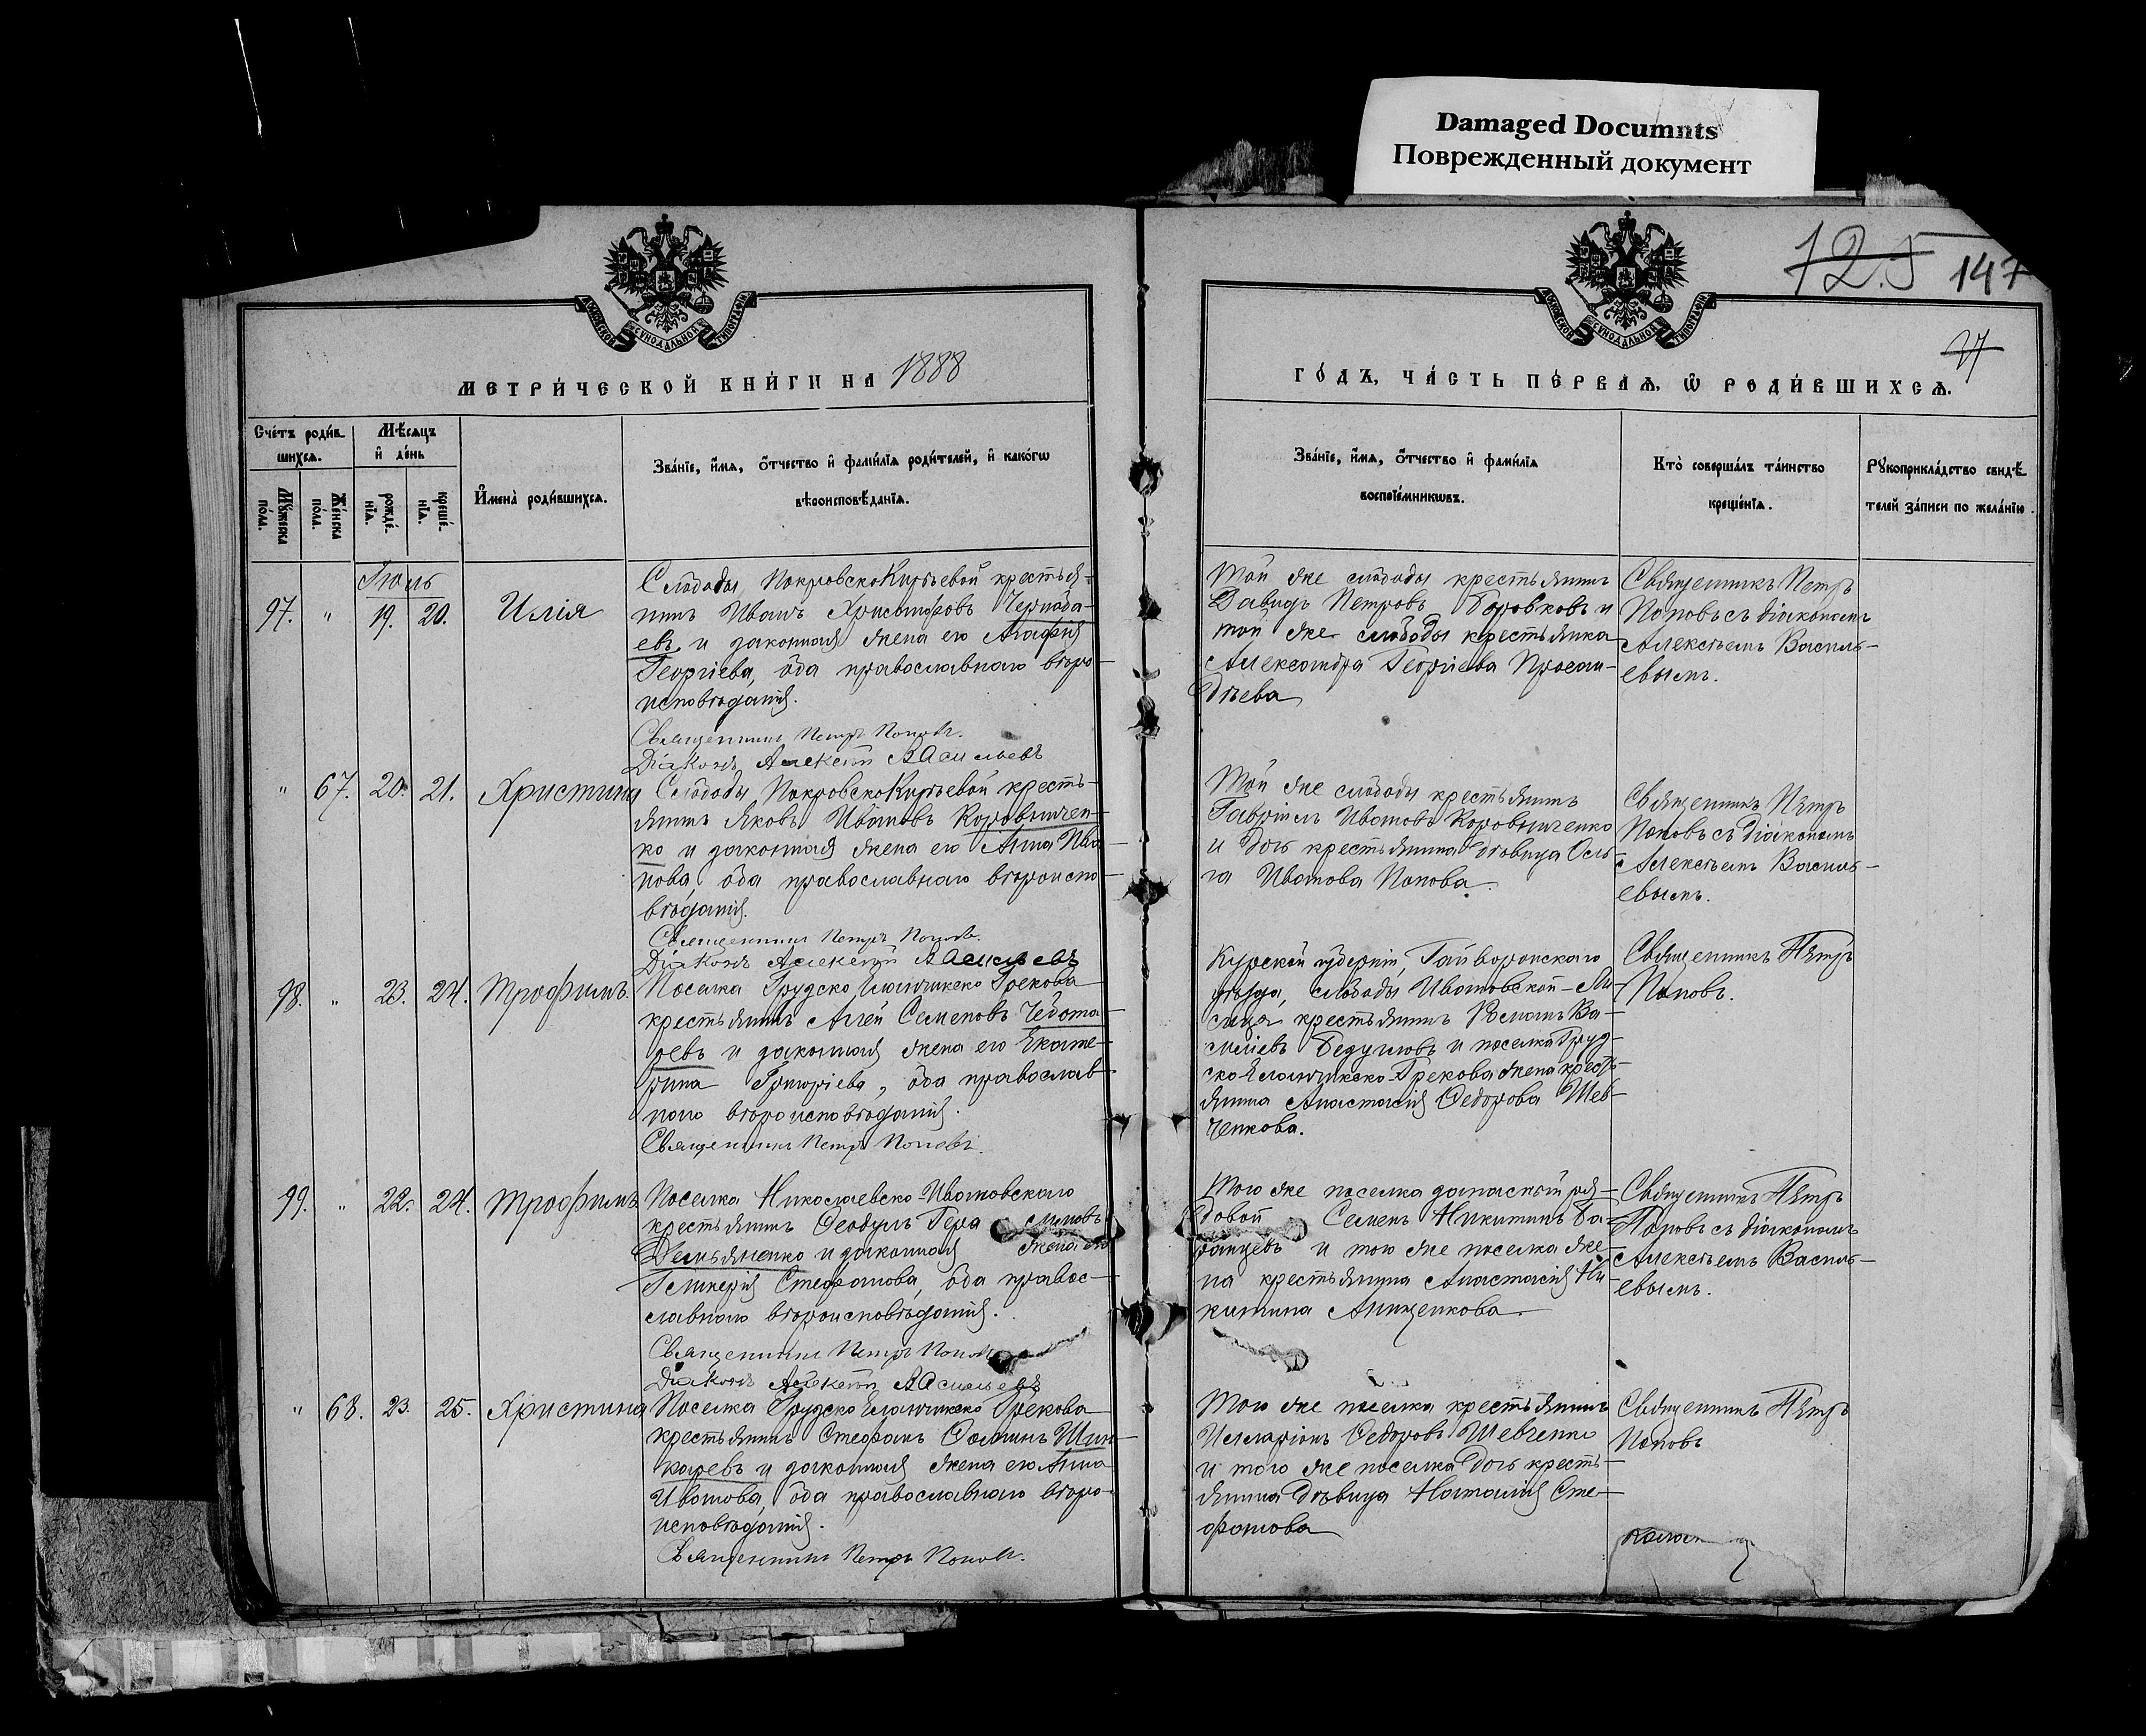 Damaged Documnts
Поврежденный документ
125 147
МОСКОВСКОЙ СѴНОДАЛЬНОЙ ТИПОГРАФІИ
МОСКОВСКОЙ СѴНОДАЛЬНОЙ ТИПОГРАФІИ
МЕТРИ́ЧЕСКОЙ КНИ́ГИ НА 1888
ГО́ДЪ, ЧА́СТЬ ПЕ́РВАѦ, Ѡ҆ РОДИ́ВШИХСѦ.
Сче́тъ роди́в
шихсѧ.
Мѣ́сѧцъ
и҆ де́нь
Мꙋ́жеска по́ла.
Же́нска по́ла.
рожде́нїѧ.
креще́нїѧ.
И҆мена̀ роди́вшихсѧ.
Зва́нїе, и҆́мѧ, ѻ҆́тчество и҆ фами́лїѧ роди́телей, и҆ како́гѡ
вѣроисповѣ́данїѧ.
Зва́нїе, и҆́мѧ, ѻ҆́тчество и҆ фами́лїѧ
воспрїе́мникѡвъ.
Кто̀ соверша́лъ та́инство
креще́нїѧ.
Рꙋкоприкла́дство свидѣ́
телей за́писи по жела́нїю.
Іюль
97. " 19. 20. Илія
Слободы ПокровскоКирѣевой крестья-
нинъ Иванъ Христофоровъ Чернода-
евъ и законная жена его Агафія
Георгіева, оба православнаго вѣро-
исповѣданія.
Священникъ Петръ Поповъ.
Діаконъ Алексѣй Васильевъ
Той же слободы крестьянинъ
Давидъ Петровъ Боровковъ и
той же слободы крестьянка
Александра Георгіева
Священникъ Петръ
Поповъ съ діакономъ
Алексѣемъ Василь-
евымъ.
" 67. 20. 21. Христина
Слободы ПокровскоКирѣевой кресть-
янинъ Яковъ Ивановъ Коровничен-
ко и законная жена его Анна Ива-
нова, оба православнаго вѣроиспо-
вѣданія.
Священникъ Петръ Поповъ.
Діаконъ Алексѣй Васильевъ
Той же слободы крестьянинъ
Гавріилъ Ивановъ Коровниченко
и дочь крестьянина дѣвица Оль-
га Иванова Попова.
Священникъ Петръ
Поповъ съ діакономъ
Алексѣемъ Василь-
евымъ.
98. " 23. 24. Трофимъ.
Поселка Грудско Еланчикско Грекова
крестьянинъ Аггей Семеновъ Чебота-
ревъ и законная жена его Екате-
рина Григоріева, оба православ-
наго вѣроисповѣданія.
Священникъ Петръ Поповъ.
Курской губерніи, Гайворонскаго
уѣзда, слободы Ивановской-Ли-
сица крестьянинъ Романъ Ва-
силіевъ и поселка Груд-
ско Еланчикско-Грекова жена кресть-
янина Анастасія Федорова Шев-
ченкова.
Священникъ Петръ
Поповъ.
99. " 22. 24. Трофимъ
Поселка Николаевско-Ивановскаго
крестьянинъ Феодулъ Гера симовъ
Демьяненко и законная жена его
Гликерія Стефанова, оба правос-
лавнаго вѣроисповѣданія.
Священникъ Петръ Поповъ
Діаконъ Алексѣй Васильевъ
Того же поселка запасный ря-
довой Семенъ Никитинъ Ба-
ранцевъ и того же поселка же-
на крестьянина Анастасія Ни-
китина Анищенкова.
Священникъ Петръ
Поповъ съ діакономъ
Алексѣемъ Василь-
евымъ.
" 68. 23. 25. Христина
Поселка Грудско Еланчикско Грекова
крестьянинъ Стефанъ Фоминъ Шин-
каревъ и законная жена его Анна
Иванова, оба православнаго вѣро-
исповѣданія.
Священникъ Петръ Поповъ.
Того же поселка крестьянинъ
Илларіонъ Федоровъ Шевченко
и того же поселка дочь кресть-
янина дѣвица Наталія Сте-
фанова
Священникъ Петръ
Поповъ